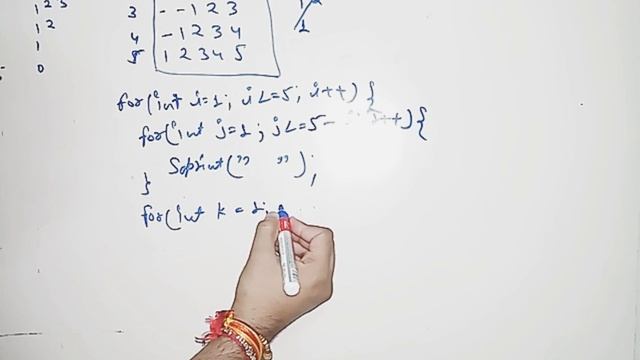 1 2 3
1 2
1
0
3 - - 1 2 3
4 - 1 2 3 4
5 1 2 3 4 5
1
for(int i=1; i<=5; i++) {
for(int j=1; j<=5-i; j++){
Soprint(" ");
}
for(int k = 1;